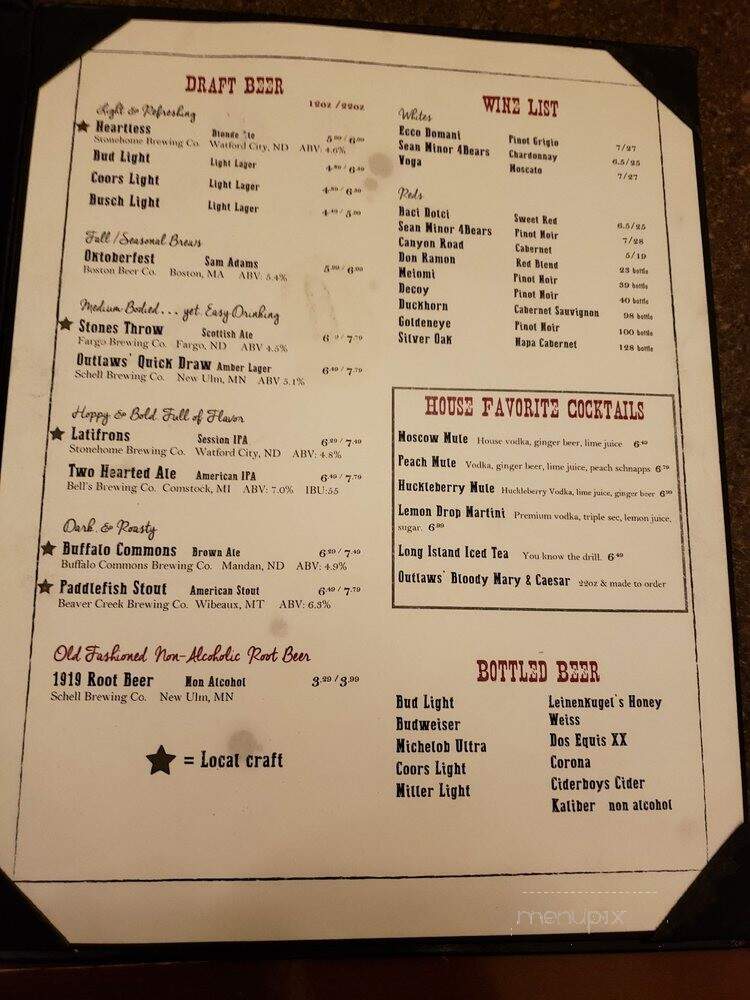 DRAFT BEER
12oz /22oz
Light & Refreshing
Heartless Blonde Ale 5.99 / 6.99
Stonehome Brewing Co. Watford City, ND ABV: 4.6%
Bud Light Light Lager 4.89 / 6.39
Coors Light Light Lager 4.89 / 6.39
Busch Light Light Lager
Fall / Seasonal Brews
Oktoberfest Sam Adams 5.99 / 6.99
Boston Beer Co. Boston, MA ABV: 5.4%
Medium Bodied... yet Easy Drinking
Stones Throw Scottish Ale / 7.79
Fargo Brewing Co. Fargo, ND ABV 4.5%
Outlaws' Quick Draw Amber Lager 6.49 / 7.79
Schell Brewing Co. New Ulm, MN ABV 5.1%
Hoppy & Bold Full of Flavor
Latifrons Session IPA 6.29 / 7.49
Stonehome Brewing Co. Watford City, ND ABV: 4.8%
Two Hearted Ale American IPA 6.49 / 7.79
Bell's Brewing Co. Comstock, MI ABV: 7.0% IBU:55
Dark & Roasty
Buffalo Commons Brown Ale 6.29 / 7.49
Buffalo Commons Brewing Co. Mandan, ND ABV: 4.9%
Paddlefish Stout American Stout 6.49 / 7.79
Beaver Creek Brewing Co. Wibeaux, MT ABV: 6.3%
Old Fashioned Non-Alcoholic Root Beer
1919 Root Beer Non Alcohol 3.29 / 3.99
Schell Brewing Co. New Ulm, MN
= Local craft
WINE LIST
Whites
Ecco Domani Pinot Grigio 7/27
Sean Minor 4Bears Chardonnay 6.5/25
Voga Moscato 7/27
Reds
Baci Dolci Sweet Red 6.5/25
Sean Minor 4Bears Pinot Noir 7/28
Canyon Road Cabernet 5/19
Don Ramon Red Blend 23 bottle
Meiomi Pinot Noir 39 bottle
Decoy Pinot Noir 40 bottle
Duckhorn Cabernet Sauvignon 98 bottle
Goldeneye Pinot Noir 100 bottle
Silver Oak Napa Cabernet 128 bottle
HOUSE FAVORITE COCKTAILS
Moscow Mule House vodka, ginger beer, lime juice 6.49
Peach Mule Vodka, ginger beer, lime juice, peach schnapps 6.79
Huckleberry Mule Huckleberry Vodka, lime juice, ginger beer 6.99
Lemon Drop Martini Premium vodka, triple sec, lemon juice,
sugar. 6.99
Long Island Iced Tea You know the drill. 6.49
Outlaws' Bloody Mary & Caesar 22oz & made to order
BOTTLED BEER
Bud Light
Budweiser
Michelob Ultra
Coors Light
Miller Light
Leinenkugel's Honey
Weiss
Dos Equis XX
Corona
Ciderboys Cider
Kaliber non alcohol
menupix